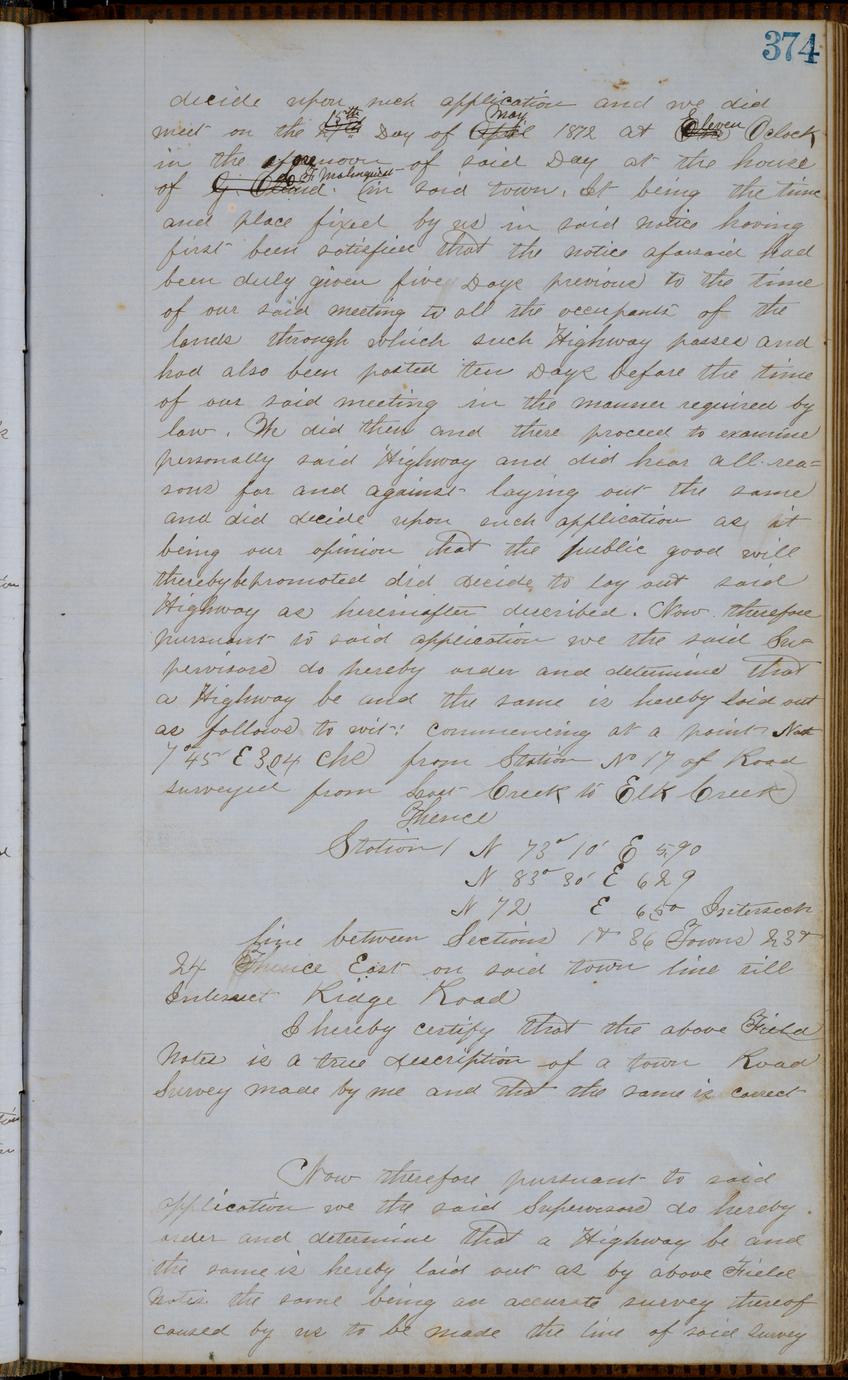 374
decide upon such application and we did
meet on the 15th Day of May 1872 at Eleven Oclock
in the forenoon of said Day at the house
of F. Malmquist in said town. It being the time
and place fixed by us in said notice having
first been satisfied that the notice aforsaid had
been duly given five Days previous to the time
of our said meeting to all the occupants of the
lands through which such Highway passes and
had also been posted ten Days before the time
of our said meeting in the manner required by
law. We did then and there proceed to examine
personally said Highway and did hear all rea=
sons for and against laying out the same
and did decide upon such application as it
being our opinion that the public good will
thereby be promoted did decide to lay out said
Highway as hereinafter described. Now therefore
pursuant to said application we the said Su=
pervisors do hereby order and determine that
a Highway be and the same is hereby laid out
as follows to wit: commencing at a point
7° 45' E 3,04 chs from Station No 17 of Road
surveyed from Creek to Elk Creek
Thence
Station 1 N 73° 10' E 5,90
N 83° 30' E 629
N 72 E 650 Intersect
line between Sections 1 & 36 Towns 23 &
24 Thence East on said town line till
Intersect Ridge Road
I hereby certify that the above Field
Notes is a true description of a town Road
Survey made by me and that the same is correct
Now therefore pursuant to said
application we the said Supervisors do hereby
order and determine that a Highway be and
the same is hereby laid out as by above Field
notes the same being an accurate survey thereof
caused by us to be made the line of said survey